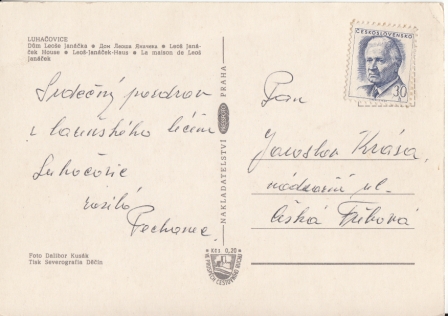 LUHAČOVICE
Dům Leoše Janáčka • Дом Леоша Яначека • Leoš Janá-
ček House • Leoš-Janáček-Haus • La maison de Leoš
Janáček
Srdečný pozdrav
z lázeňského léčení
Luhačovic
posílá
Pechanec.
Foto Dalibor Kusák
Tisk Severografia Děčín
NAKLADATELSTVÍ
PRAHA
ČESKOSLOVENSKO
30
Pan
Jaroslav Krása,
nádražní ul.
Česká Třebová